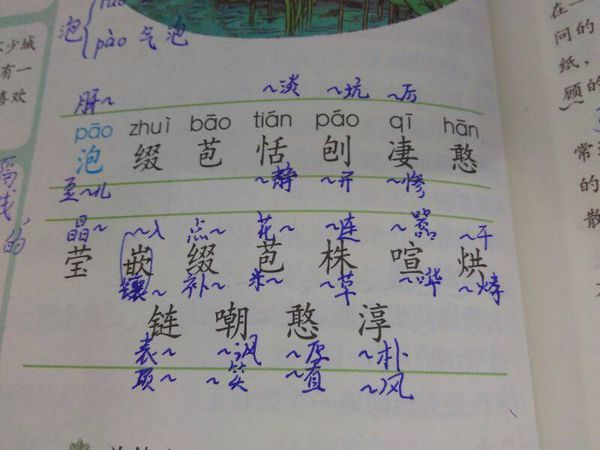 泡
pào 气泡
少城
有一
喜欢
在一
问的
纸，
顾的
~淡 ~坑 ~厉
pāo zhuì bāo tián páo qī hān
泡 缀 苞 恬 刨 凄 憨
~静 ~开 ~惨
晶~ ~入 点~ 花~ ~连 ~嚣 ~干
莹 嵌 缀 苞 株 喧 烘
镶~ 补~ ~草 ~哗 ~烤
链 嘲 憨 淳
表~ ~讽 ~厚 ~朴
项~ ~笑 ~直 ~风